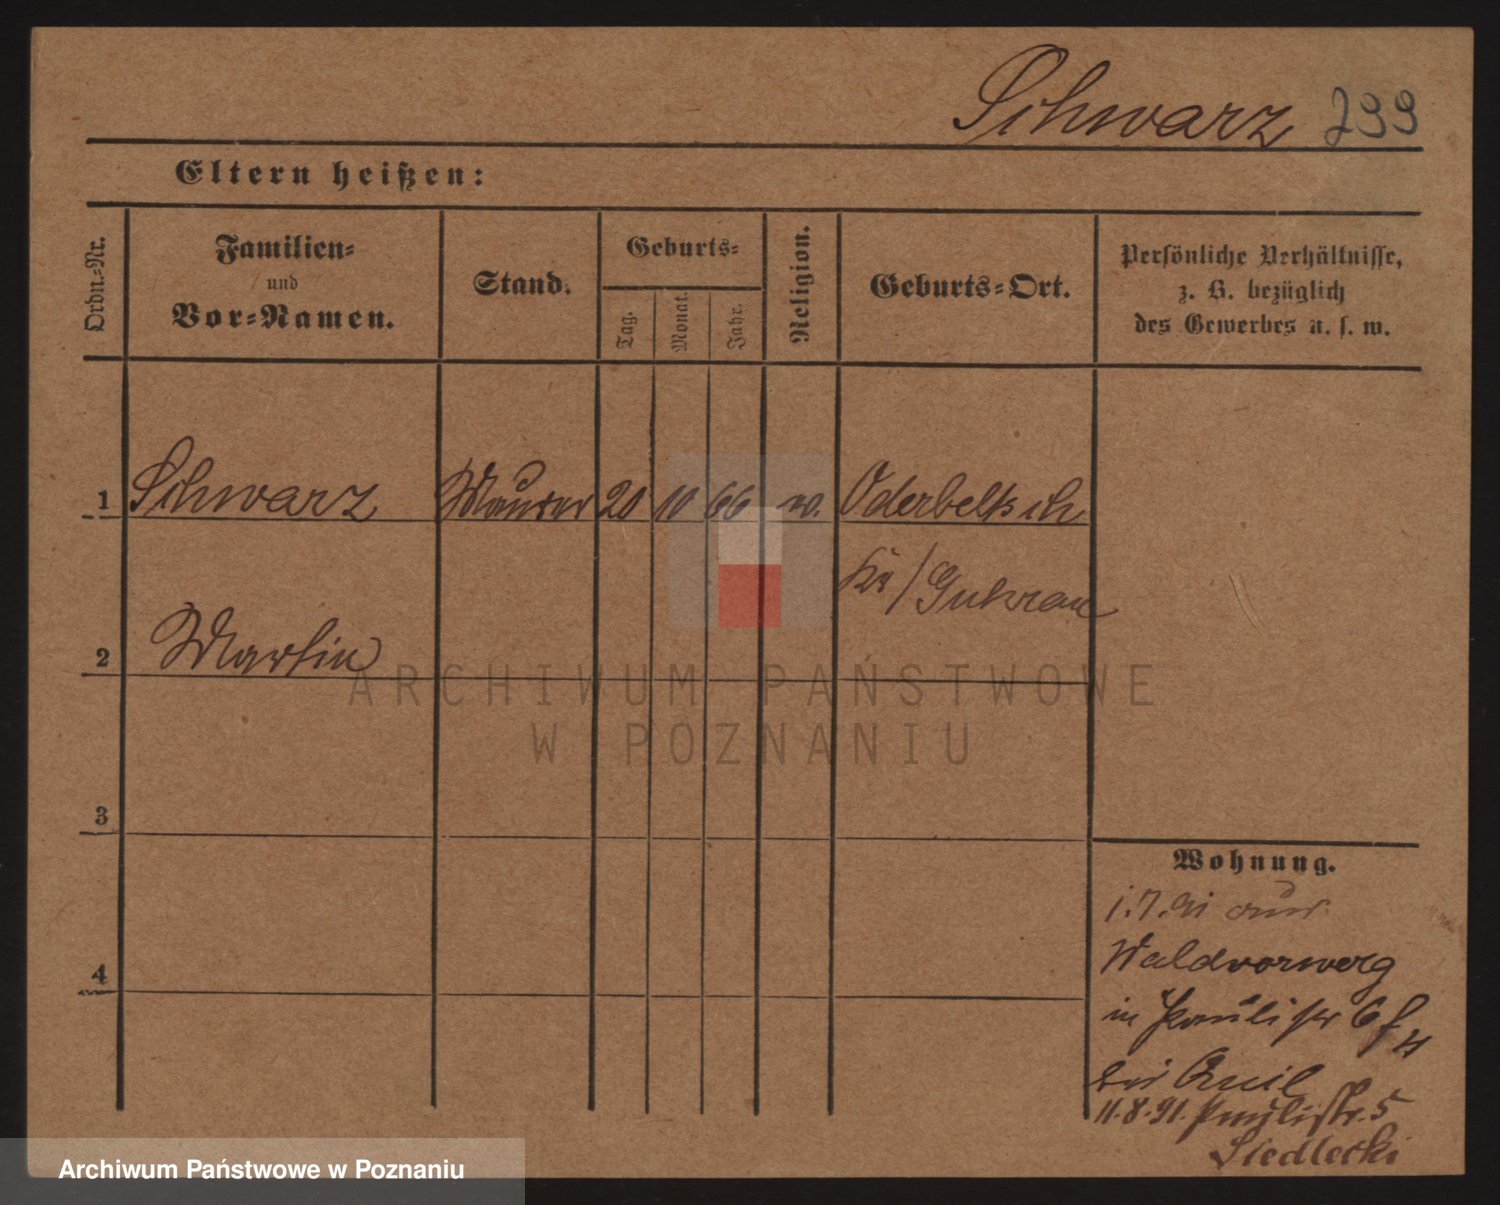 Schwarz 299
Eltern heißen:
Ordn.-Nr.
Familien-
und
Vor-Namen.
Stand.
Geburts-
Tag.
Monat.
Jahr.
Religion.
Geburts-Ort.
Persönliche Verhältnisse,
z. B. bezüglich
des Gewerbes u. s. w.
1 Schwarz Maurer 20 10 66 Oderbeltsch
Kr/Guhrau
2 Martin
3
4
Wohnung.
1.7.91 aus
Waldvorwerg
in Paulistr 6
bei
11.8.91. Paulistr. 5
Siedlecki
ARCHIWUM PAŃSTWOWE
W POZNANIU
Archiwum Państwowe w Poznaniu